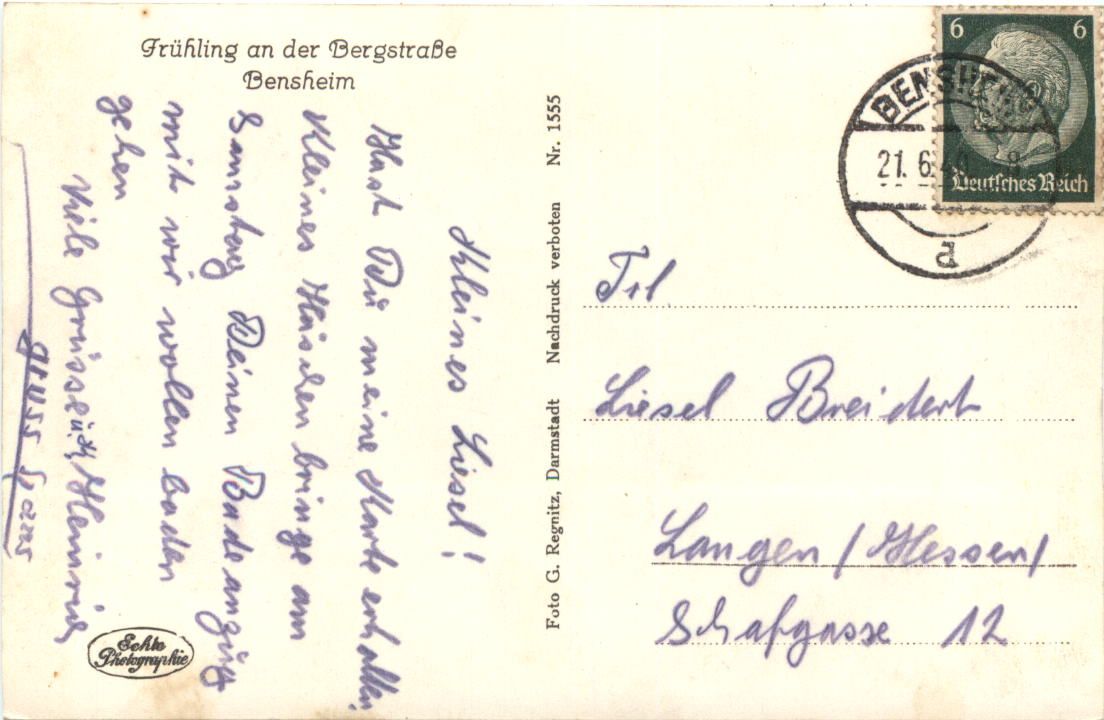 Frühling an der Bergstraße
Bensheim
Kleines Liesel!
Hast Du meine Karte erhalten,
Kleines Häschen bringe am
Samstag Deinen Badeanzug
mit wir wollen baden
gehen
Viele Grüsse
Heinrich
gruss
Echte
Photographie
Foto G. Regnitz, Darmstadt Nachdruck verboten Nr. 1555
6 6
Deutsches Reich
BENSHEIM
21. 6.
d
Frl
Liesel Breidert
Langen / Hessen /
Schafgasse 12